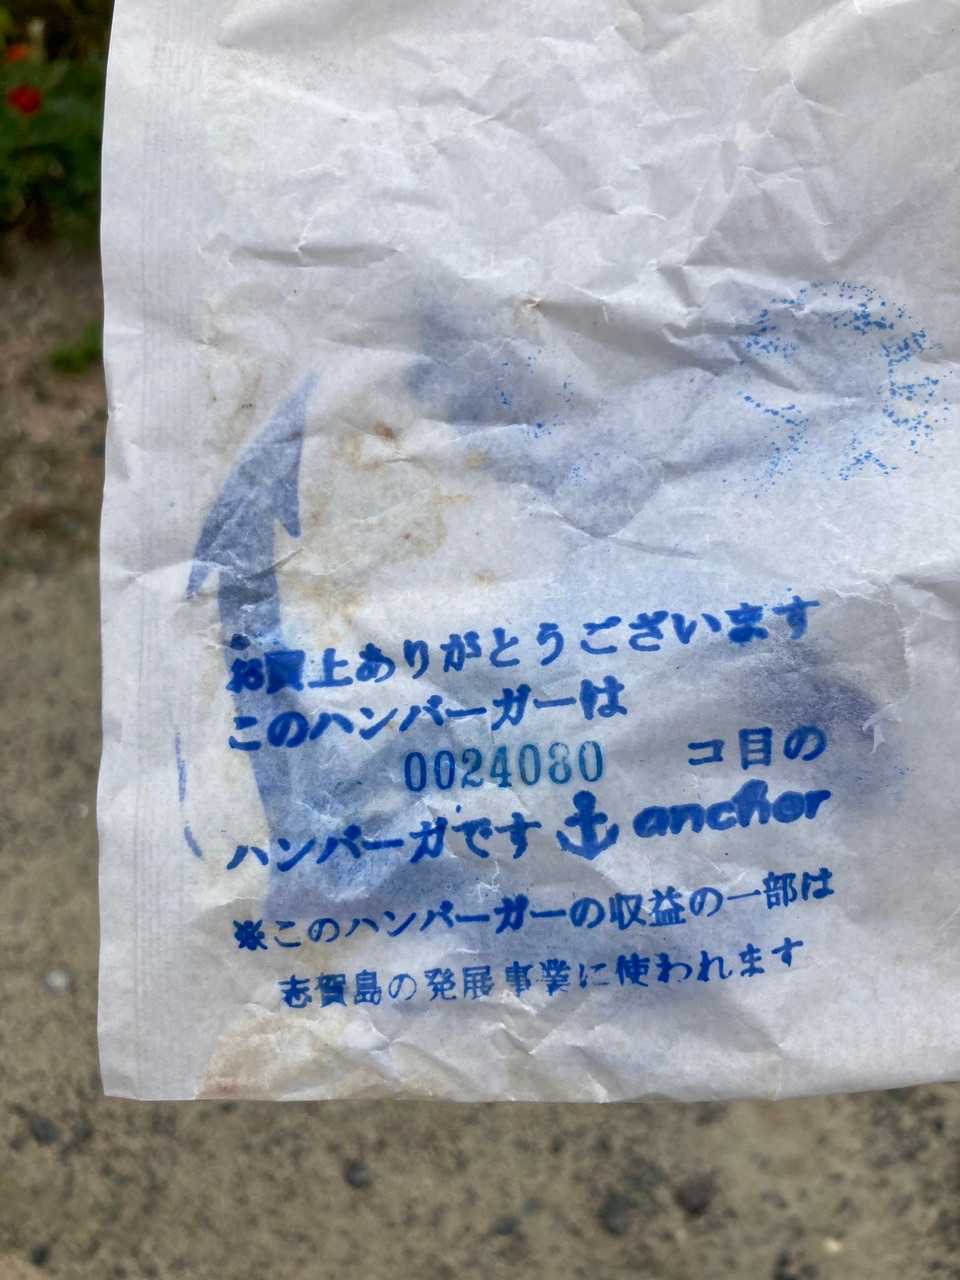 お買上ありがとうございます
このハンバーガーは
0024080 コ目の
ハンバーガです anchor
※このハンバーガーの収益の一部は
志賀島の発展事業に使われます